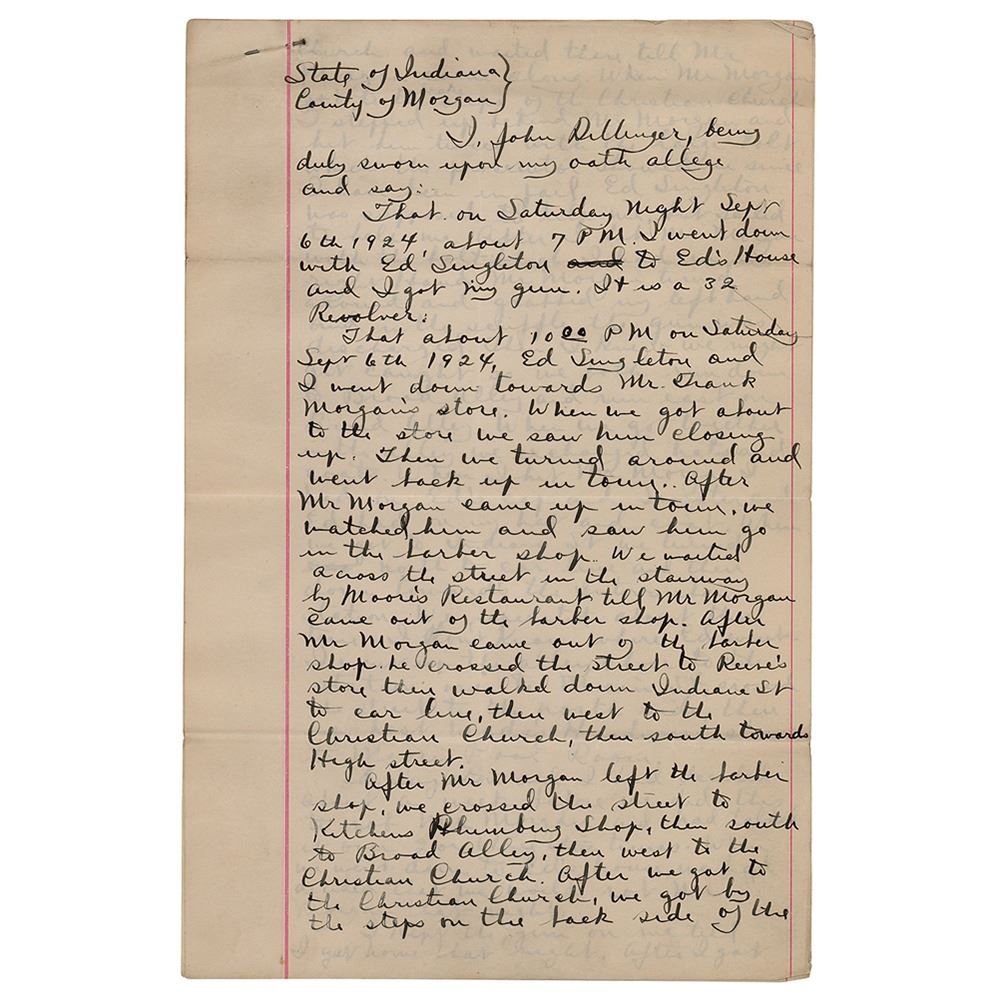 State of Indiana }
County of Morgan }
I, John Dillinger, being
duly sworn upon my oath allege
and say:
That on Saturday Night Sept
6th 1924, about 7 PM. I went down
with Ed Singleton and to Ed's House
and I got my gun. It is a 32
Revolver:
That about 10 00 PM on Saturday
Sept 6th 1924, Ed Singleton and
I went down towards Mr. Frank
Morgan's store. When we got about
to the store we saw him closing
up. Then we turned around and
went back up in town. After
Mr Morgan came up in town, we
watched him and saw him go
in the barber shop. We waited
across the street in the stairway
by Moore's Restaurant till Mr Morgan
came out of the barber shop. After
Mr Morgan came out of the barber
shop he crossed the street to Reeve's
store then walked down Indiana St
to car line, then west to the
Christian Church, then south towards
High street.
After Mr Morgan left the barber
shop, we crossed the street to
Kitchens Plumbing Shop, then south
to Broad Alley, then west to the
Christian Church. After we got to
the Christian Church, we got by
the steps on the back side of the